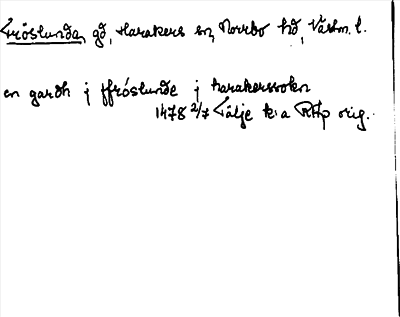 Fröslunda, gd, Harakers sn, Norrbo hd, Västm. l.
en gardh j ffróslunde j harakerssokn
1478 2/7 Tälje k:a RAp orig.